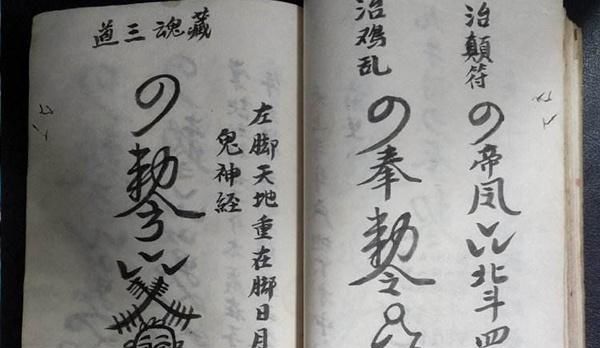 治顛符
の帝凤北斗四
治鸡乱
の奉勅令
藏魂三道
左脚天地重在脚日月
鬼神経
の勅令